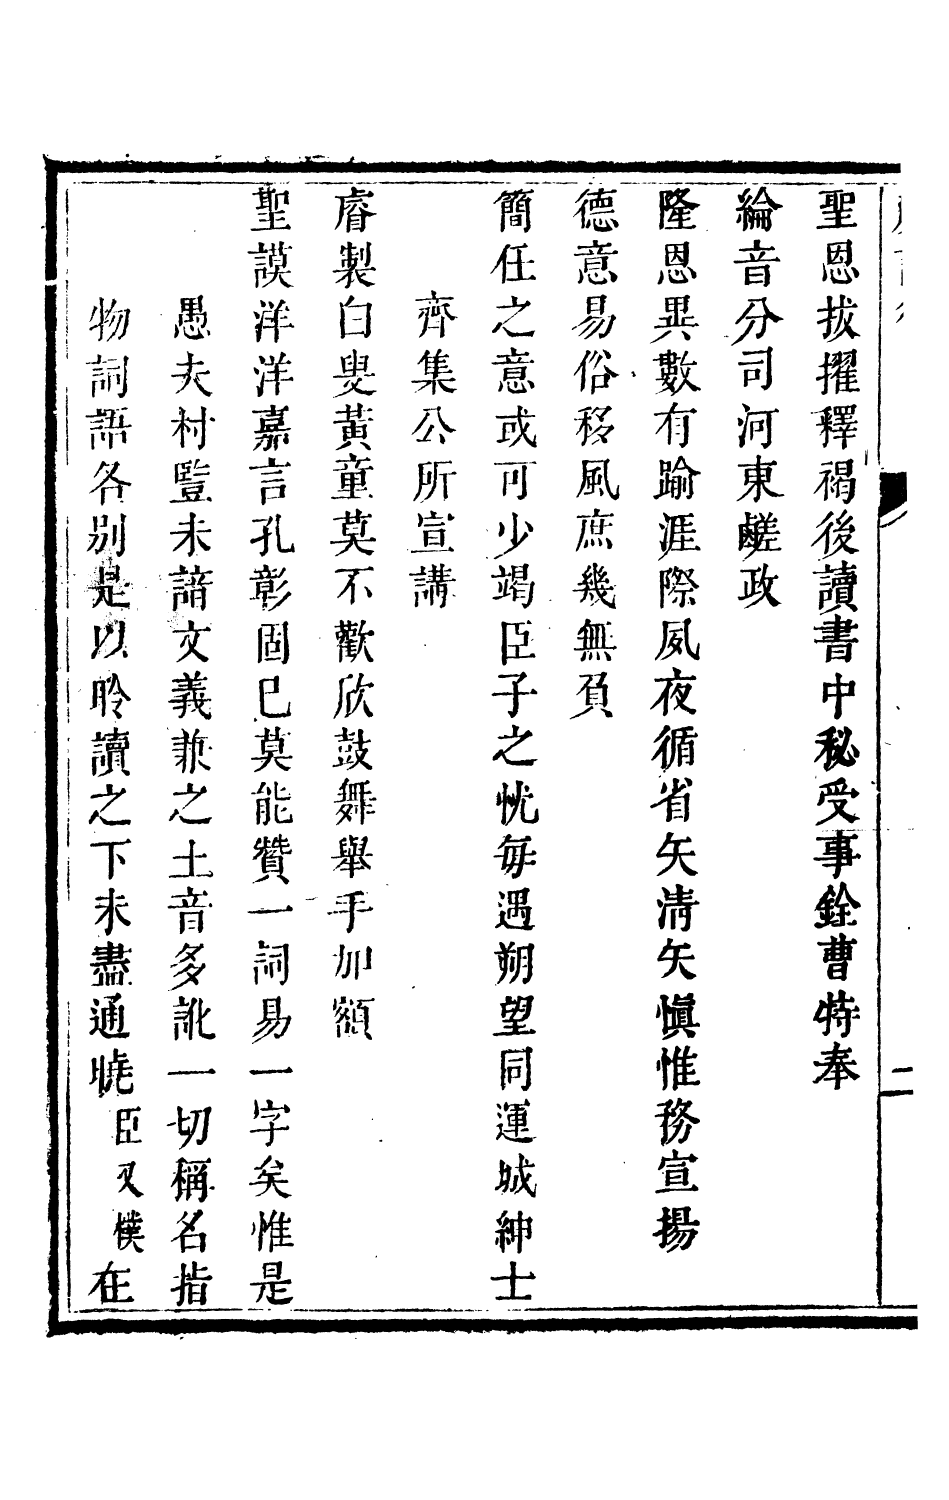 聖恩拔擢釋褐後讀書中秘受事銓曹特奉
綸音分司河東鹺政
隆恩異數有踰涯際夙夜循省矢淸矢愼惟務宣揚
德意易俗移風庶幾無負
簡任之意或可少竭臣子之忱每遇朔望同運城紳士
齊集公所宣講
睿製白叟黃童莫不歡欣鼓舞舉手加額
聖謨洋洋嘉言孔彰固已莫能贊一詞易一字矣惟是
愚夫村豎未諳文義兼之土音多訛一切稱名指
物詞語各別是以聆讀之下未盡通曉臣又樸在
二